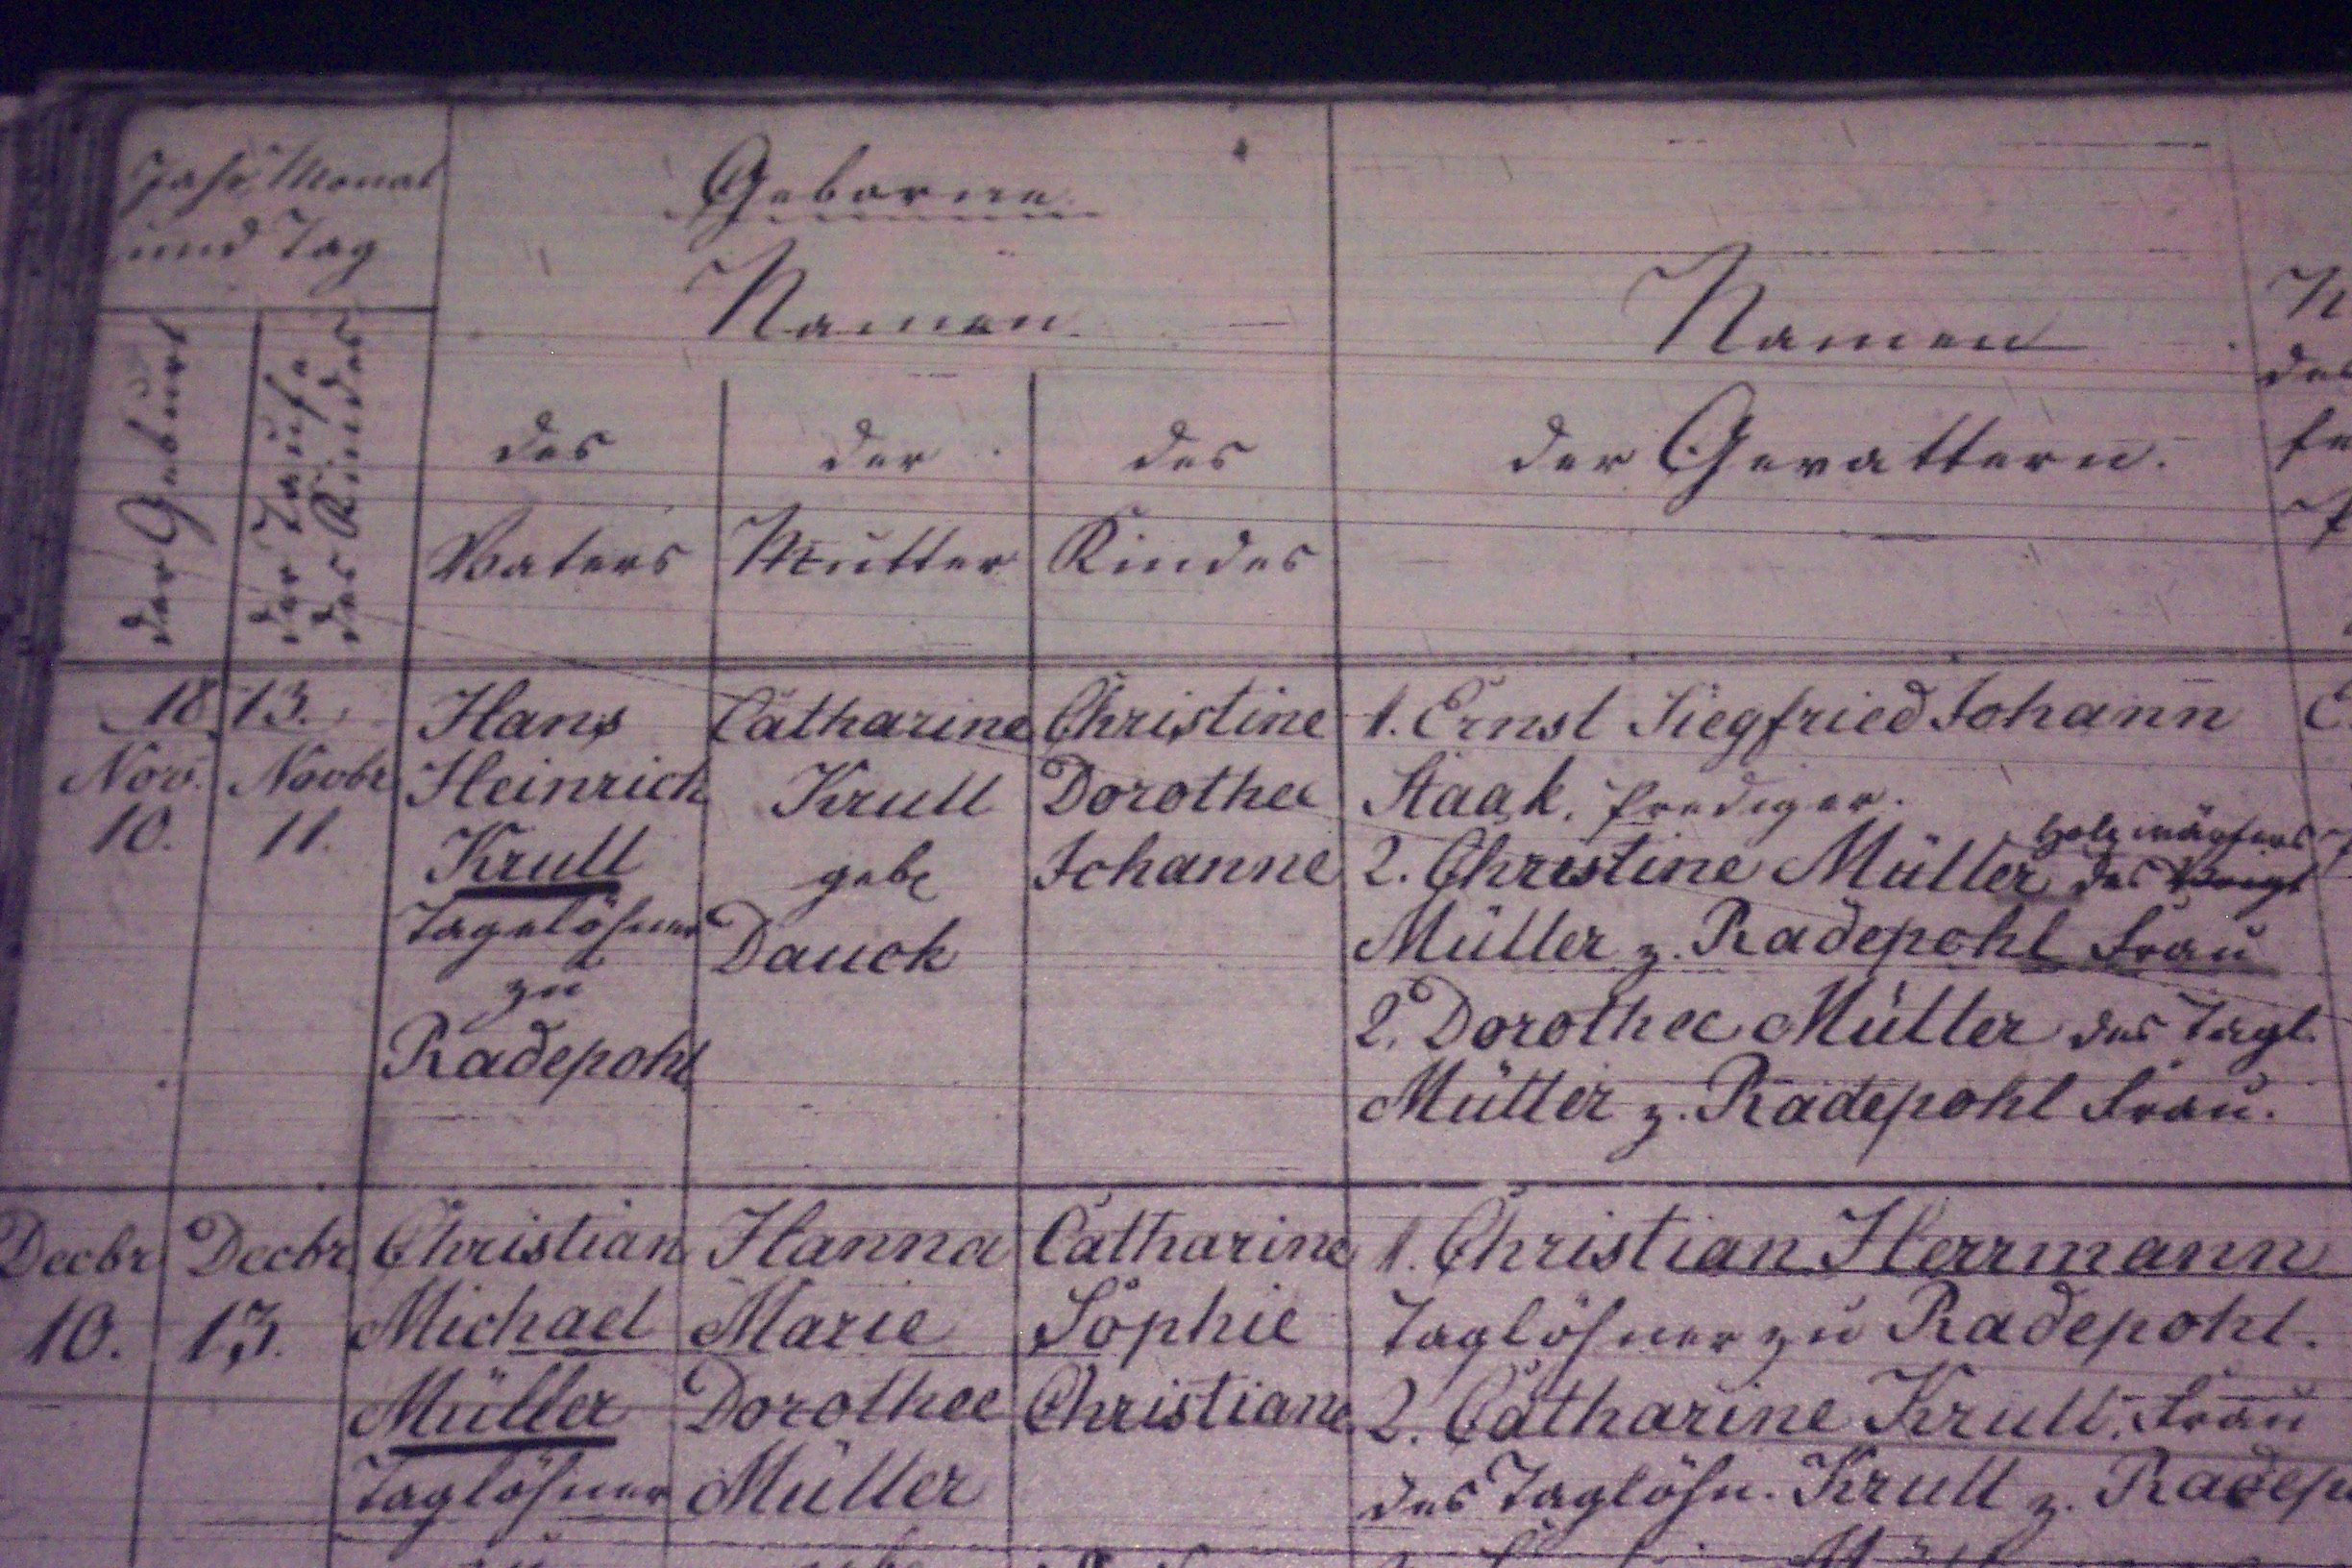 Jahr, Monat
und Tag
der Geburt
der Taufe
des Kindes
Geborne
Namen
des
Vaters
der
Mutter
des
Kindes
Namen
der Gevattern.
1813.
Nov.
10.
Novbr
11.
Hans
Heinrich
Krull
Tagelöhner
zu
Radepohl
Catharine
Krull
geb
Dauck
Christine
Dorothee
Johanne
1. Ernst Siegfried Johann
Staak, Prediger.
Holzwärters
2. Christine Müller des Voigt
Müller z. Radepohl Frau
2. Dorothee Müller des Tagl.
Müller z. Radepohl Frau.
Decbr
10.
Decbr
13.
Christian
Michael
Müller
Taglöhner
Hanna
Marie
Dorothee
Müller
Catharine
Sophie
Christiane
1. Christian Herrmann
Taglöhner zu Radepohl.
2. Catharine Krull, Frau
des Taglöhn. Krull z. Radep